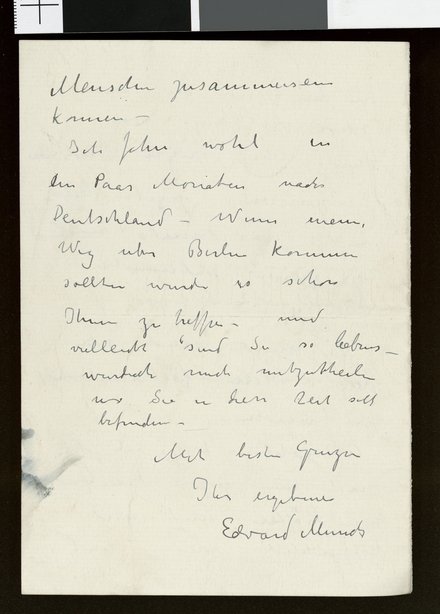 Menschen zusammensein
können –
Ich fahre wohl in
ein Paar Monaten nach
Deutschland – Wenn mein
Weg über Berlin kommen
sollte wurde es schon
Ihnen zu treffen – und
vielleicht sind Sie so liebens–
wurdich mich mitzutheilen
wo Sie in dieser Zeit sich
befinden –
Mit besten Grüzen
Ihr ergebene
Edvard Munch